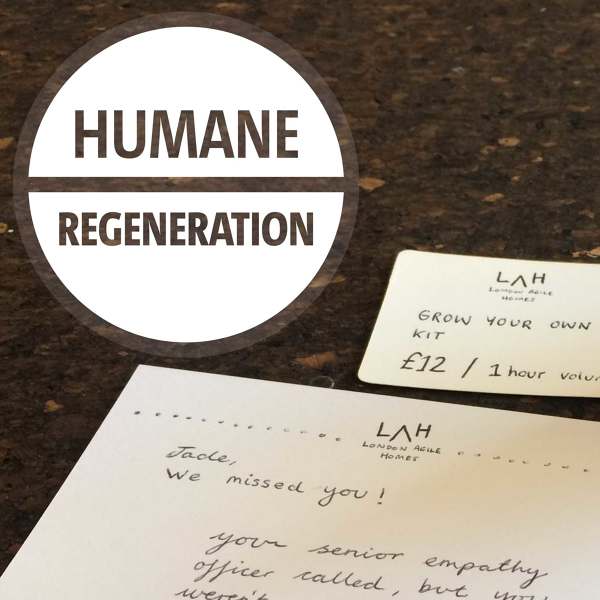 HUMANE
REGENERATION
LΛH
LONDON AGILE
HOMES
GROW YOUR OWN
KIT
£12 / 1 hour
LΛH
LONDON AGILE
HOMES
Jade,
We missed you!
your senior empathy
officer called, but you
weren't